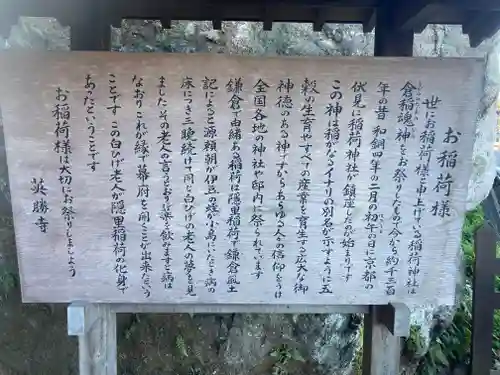 お稲荷様
世にお稲荷様と申上げている稲荷神社は
倉稲魂神をお祭りしたもので今から約千三百
年の昔 和銅四年の二月の初午の日に京都の
伏見に稲荷神社が鎮座したのが始まりです
この神は稲がなるイナリの別名が示すように五
穀の生育やすべての産業を育生する広大な御
神徳のある神ですからあらゆる人々の信仰をうけ
全国各地の神社や邸内に祭られています
鎌倉で由緒ある稲荷は隠里稲荷で鎌倉風土
記によると源頼朝が伊豆の蛭が小島にいたとき病の
床につき三晩続けて同じ白ひげの老人の夢を見
ましたその老人の言うとおりに薬を飲みますと病は
なおりこれが縁で幕府を開くことが出来たという
ことです この白ひげ老人が隠里稲荷の化身で
あったということです
お稲荷様は大切にお祭りしましょう
英勝寺